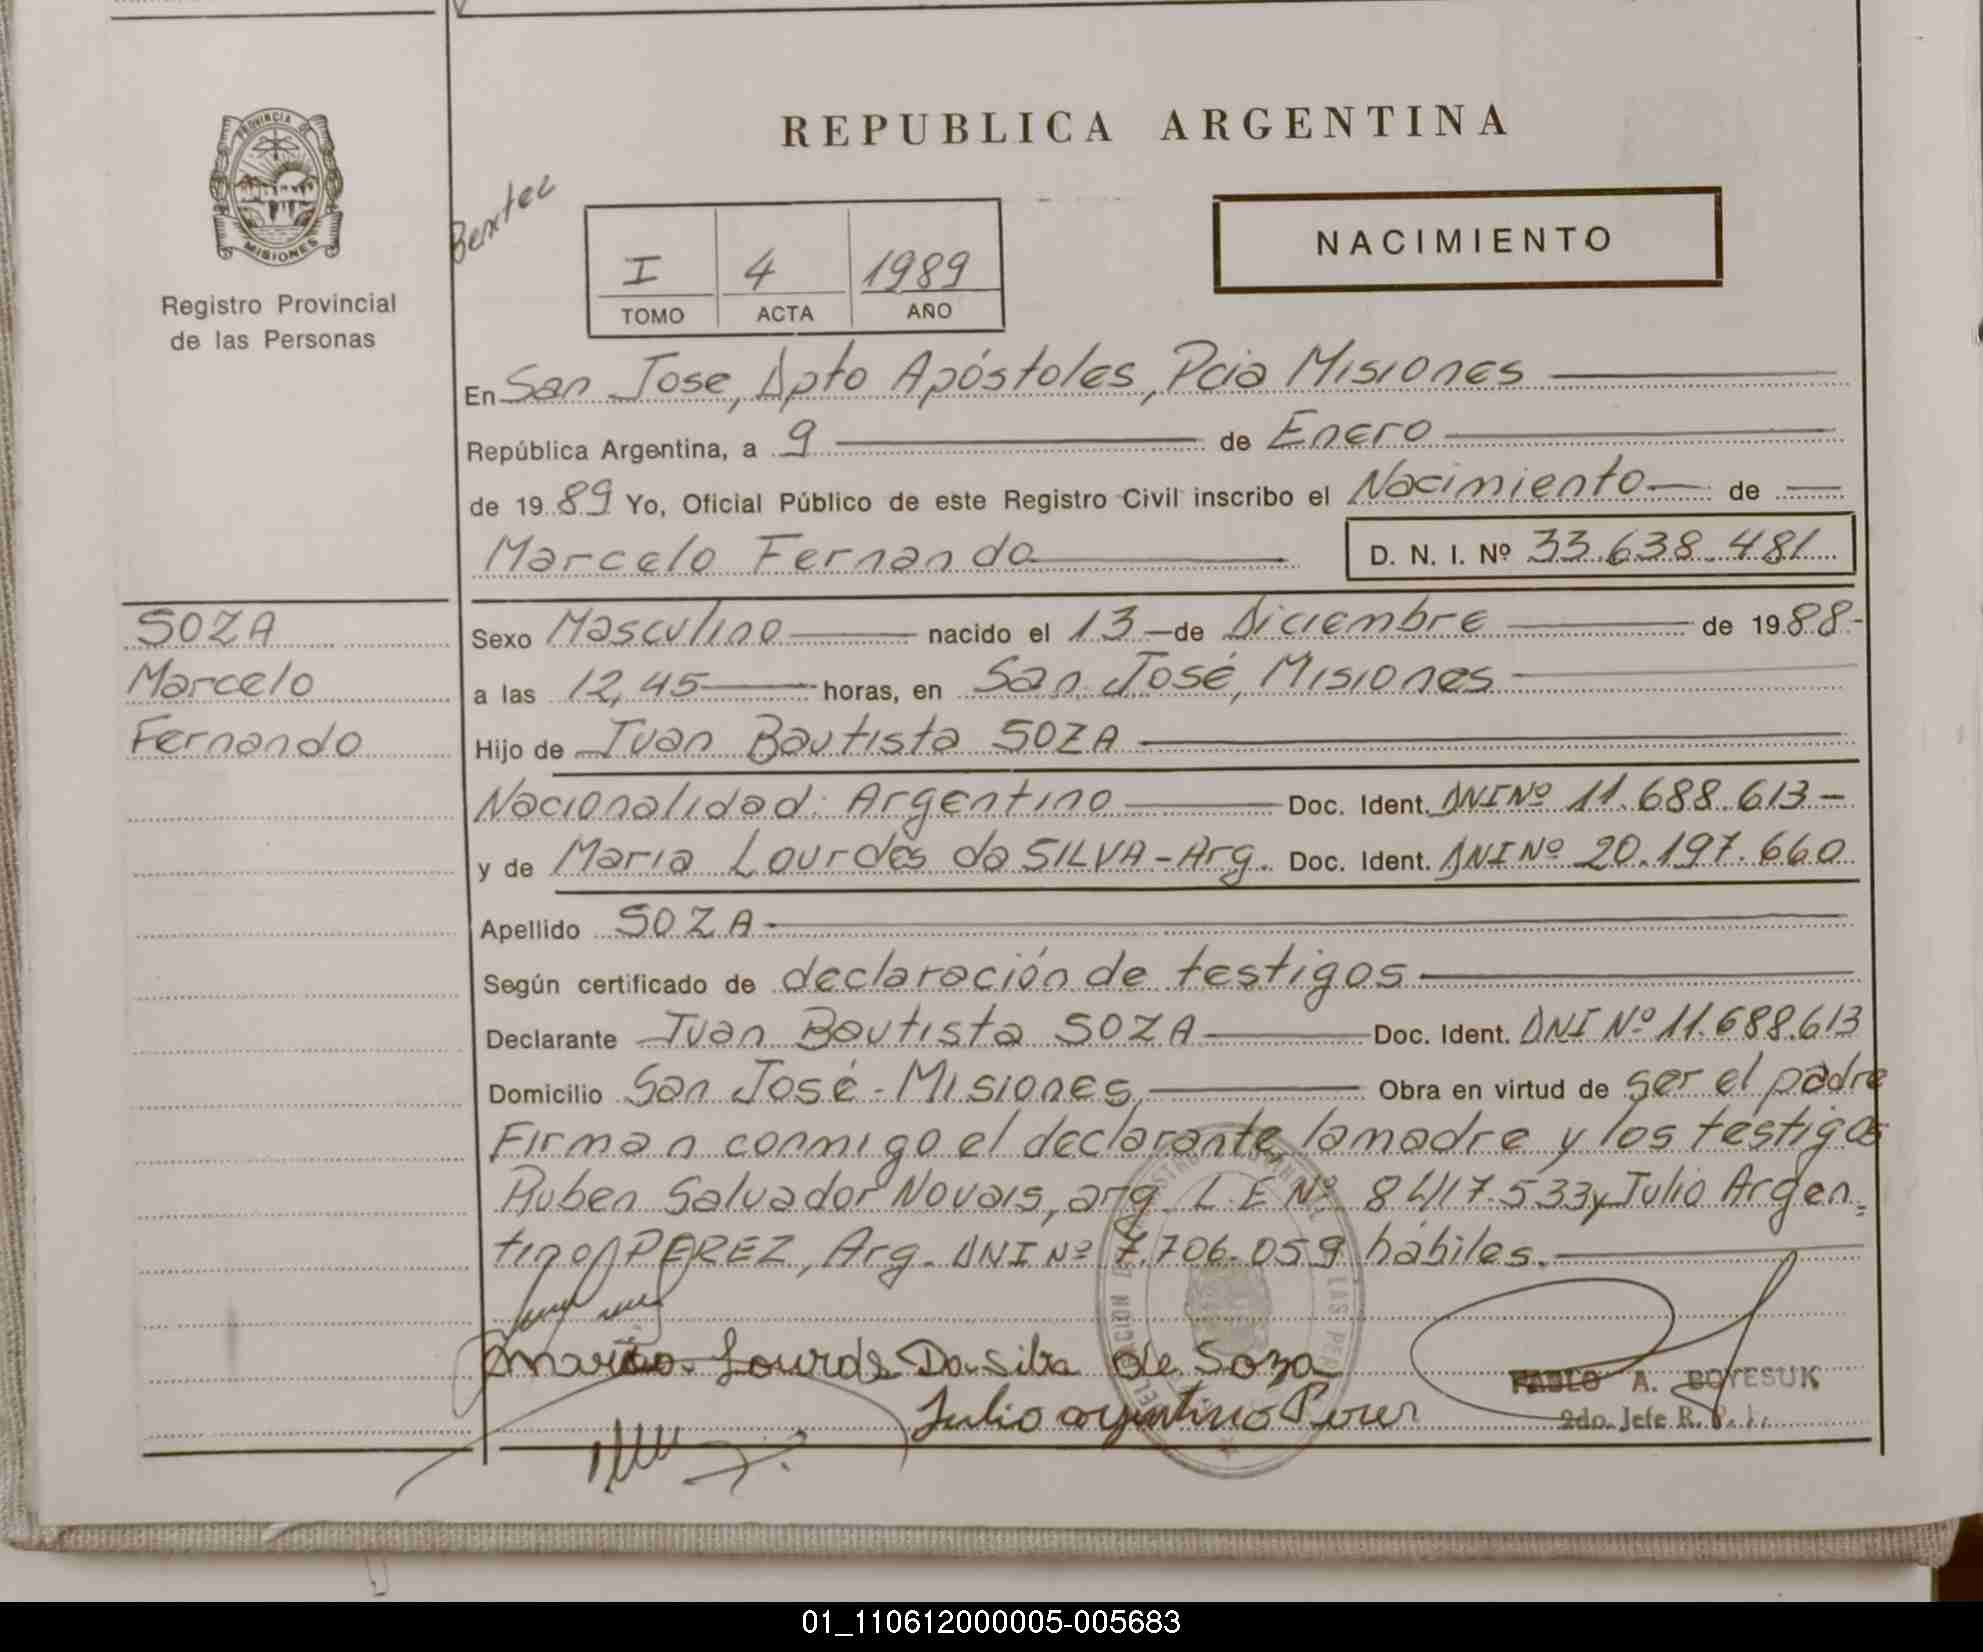 PROVINCIA DE
MISIONES
Registro Provincial
de las Personas
REPUBLICA ARGENTINA
NACIMIENTO
I 4 1989
TOMO ACTA AÑO
En San Jose, Dpto Apóstoles, Pcia Misiones
República Argentina, a 9 de Enero
de 1989 Yo, Oficial Público de este Registro Civil inscribo el Nacimiento de
Marcelo Fernando D. N. I. Nº 33.638.481
SOZA
Marcelo
Fernando
Sexo Masculino nacido el 13 de Diciembre de 1988-
a las 12,45 horas, en San José, Misiones
Hijo de Juan Bautista SOZA
Nacionalidad: Argentino Doc. Ident. DNI Nº 11.688.613-
y de Maria Lourdes da SILVA-Arg. Doc. Ident. DNI Nº 20.197.660
Apellido SOZA
Según certificado de declaración de testigos
Declarante Juan Bautista SOZA Doc. Ident. DNI Nº 11.688.613
Domicilio San José-Misiones Obra en virtud de ser el padre
Firman conmigo el declarante, la madre y los testigos
Ruben Salvador Novais, arg. L.E Nº 533 y Julio Argen=
tino PEREZ, Arg. DNI Nº 7.706.059 hábiles.
Maria Lourde Da Silva de Soza
Julio argentino Perez
PABLO A. BOYESUK
2do. Jefe R. P.
01_110612000005-005683